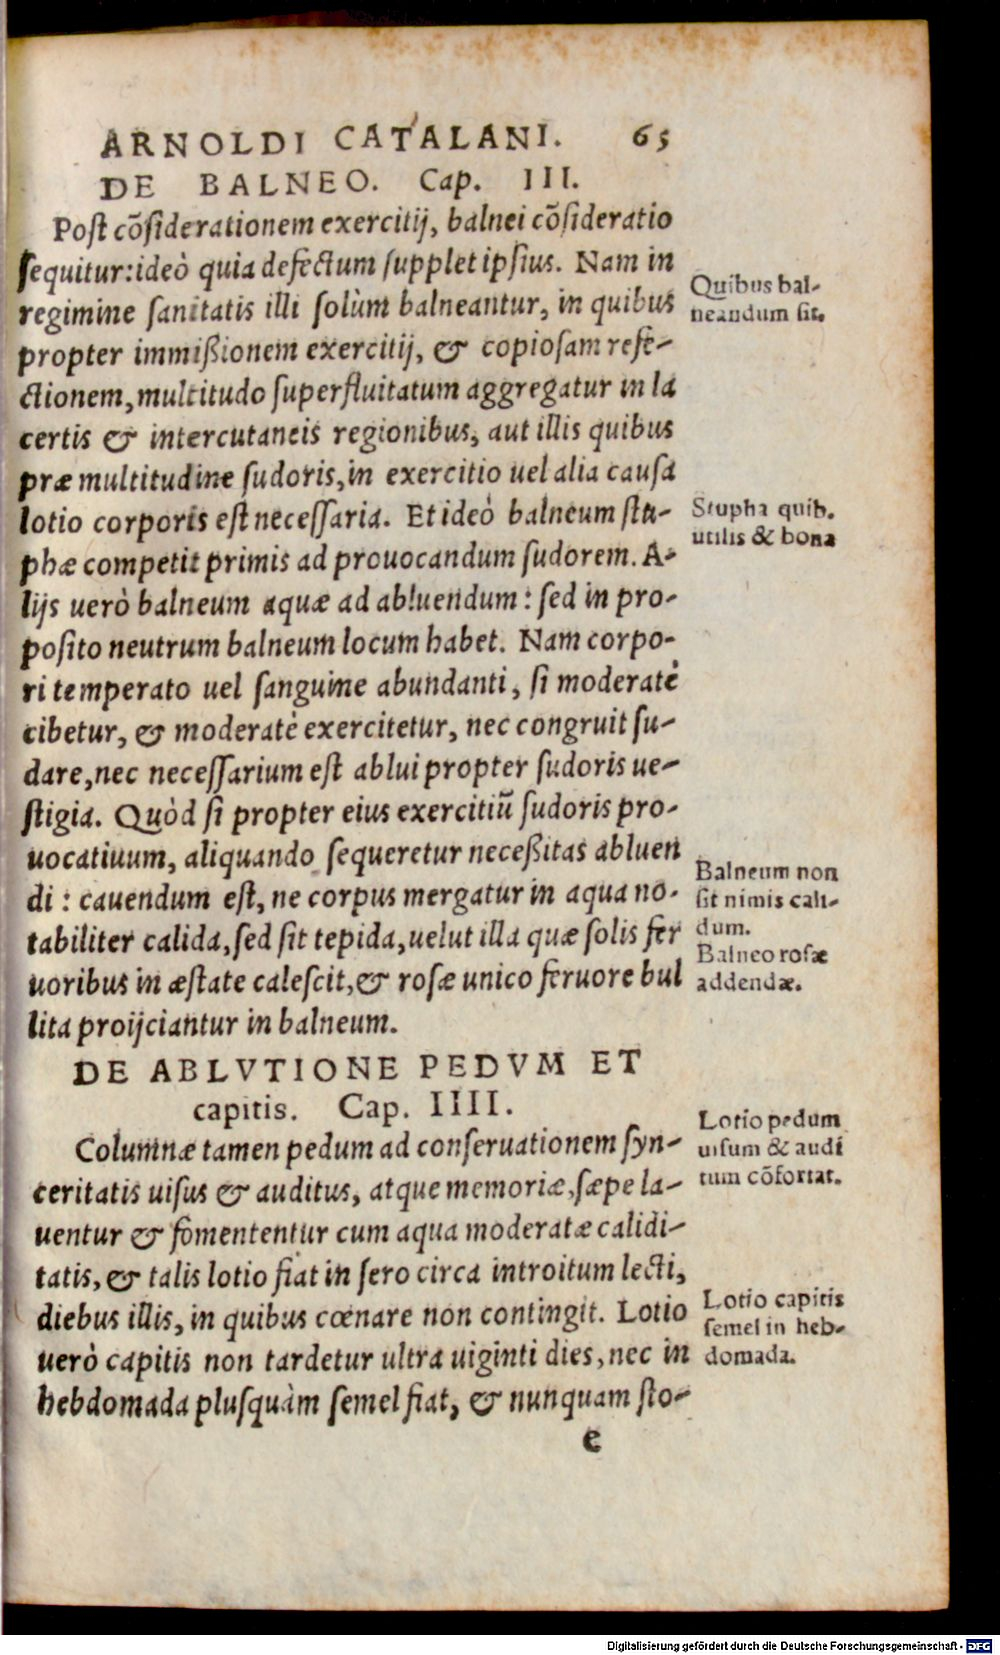 ARNOLDI CATALANI. 65
DE BALNEO. Cap. III.
Post cõsiderationem exercitij, balnei cõsideratio
sequitur: ideò quia defectum supplet ipsius. Nam in
regimine sanitatis illi solùm balneantur, in quibus
propter immißionem exercitij, & copiosam refe-
ctionem, multitudo superfluitatum aggregatur in la
certis & intercutaneis regionibus, aut illis quibus
præ multitudine sudoris, in exercitio uel alia causa
lotio corporis est necessaria. Et ideò balneum stu-
phæ competit primis ad prouocandum sudorem. A-
lijs uerò balneum aquæ ad abluendum: sed in pro-
posito neutrum balneum locum habet. Nam corpo-
ri temperato uel sanguine abundanti, si moderatè
cibetur, & moderatè exercitetur, nec congruit su-
dare, nec necessarium est ablui propter sudoris ue-
stigia. Quòd si propter eius exercitiũ sudoris pro-
uocatiuum, aliquando sequeretur neceßitas abluen
di: cauendum est, ne corpus mergatur in aqua no-
tabiliter calida, sed sit tepida, uelut illa quæ solis fer
uoribus in æstate calescit, & rosæ unico feruore bul
lita proijciantur in balneum.
Quibus bal-
neandum sit.
Stupha quib.
utilis & bona
Balneum non
sit nimis cali-
dum.
Balneo rosæ
addendæ.
DE ABLVTIONE PEDVM ET
capitis. Cap. IIII.
Columnæ tamen pedum ad conseruationem syn-
ceritatis uisus & auditus, atque memoriæ, sæpe la-
uentur & fomententur cum aqua moderatæ calidi-
tatis, & talis lotio fiat in sero circa introitum lecti,
diebus illis, in quibus cœnare non contingit. Lotio
uerò capitis non tardetur ultra uiginti dies, nec in
hebdomada plusquàm semel fiat, & nunquam sto-
Lotio pedum
uisum & audi
tum cõfortat.
Lotio capitis
semel in heb-
domada.
e
Digitalisierung gefördert durch die Deutsche Forschungsgemeinschaft - DFG